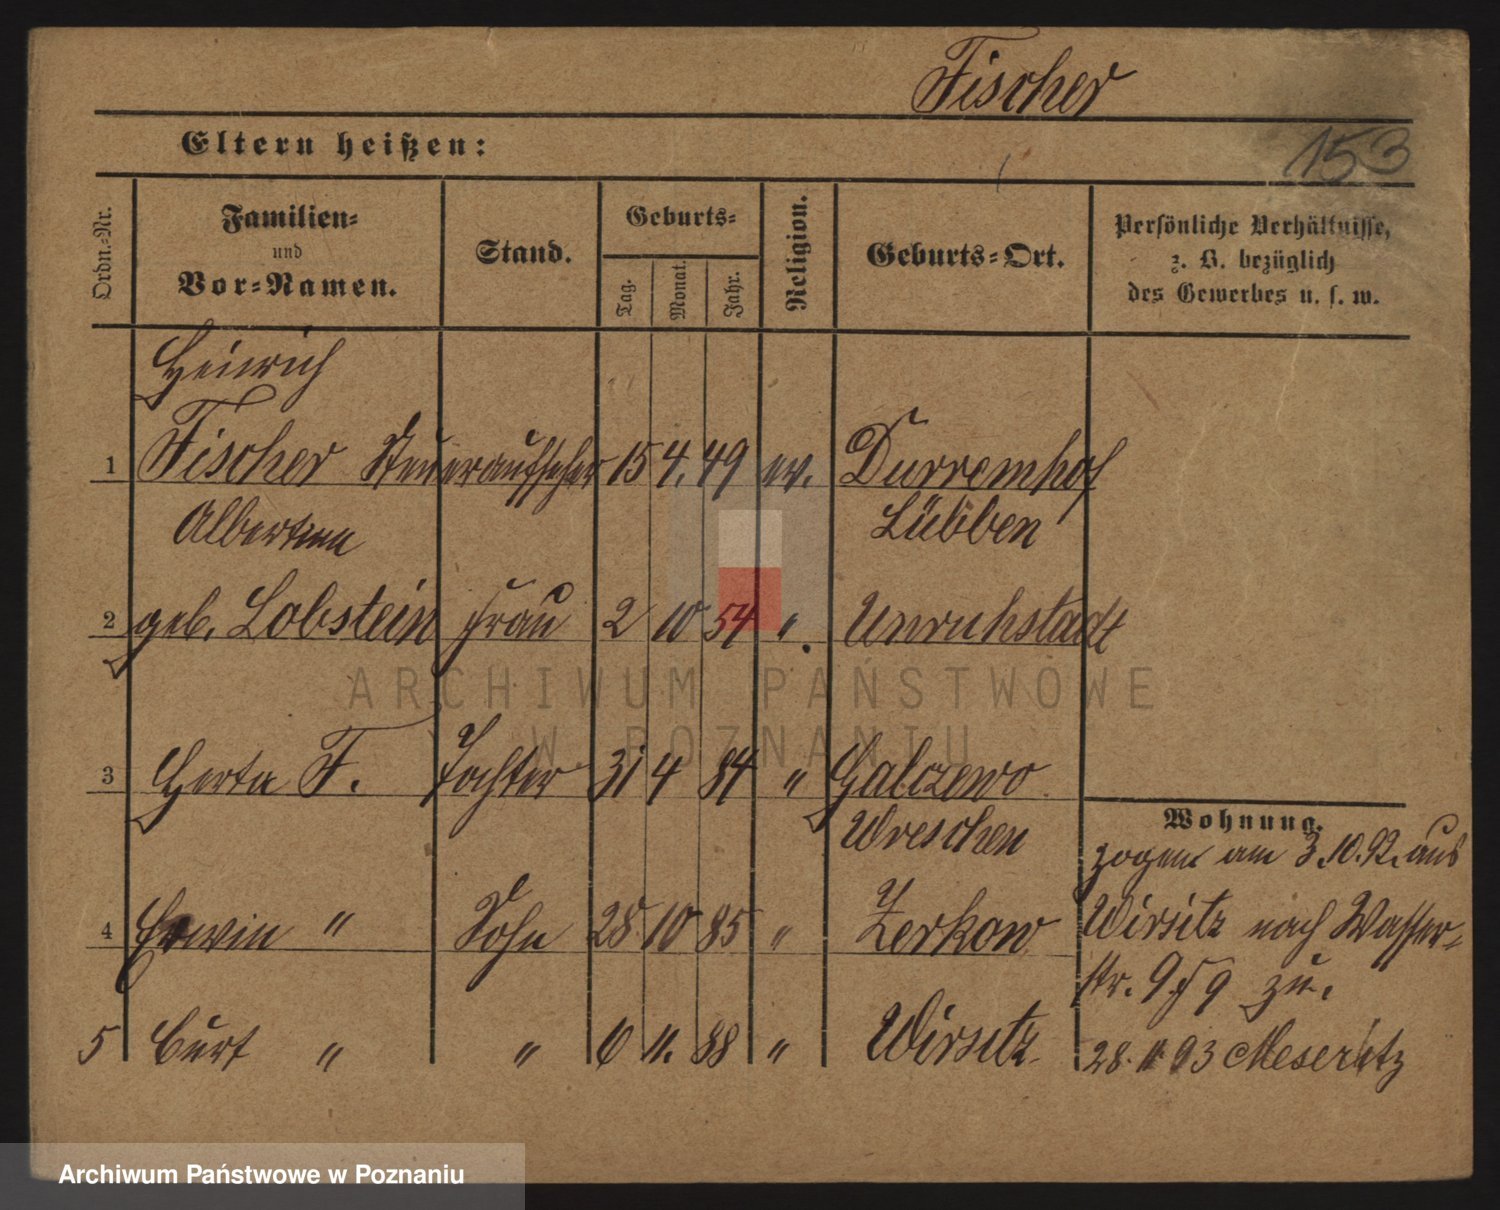 Fischer
153
Eltern heißen:
Ordn.-Nr.
Familien-
und
Vor-Namen.
Stand.
Geburts-
Tag.
Monat.
Jahr.
Religion.
Geburts-Ort.
Persönliche Verhältnisse,
z. B. bezüglich
des Gewerbes u. s. w.
Heinrich
1 Fischer Steueraufseher 15 4. 49 ev. Durrenhof
Lübben
Albertine
2 geb. Lobstein Frau 2 10 54 " Unruhstadt
3 Herta F. Tochter 31 4 84 " Galczewo
Wreschen
4 Erwin " Sohn 28 10 85 " Zerkow
5 Curt " " 6 11. 88 " Wirsitz
Wohnung.
zogen am 3.10.92. aus
Wirsitz nach Wasser-
str. 9 zu.
28. 11 93 Meseritz
ARCHIWUM PAŃSTWOWE
W POZNANIU
Archiwum Państwowe w Poznaniu